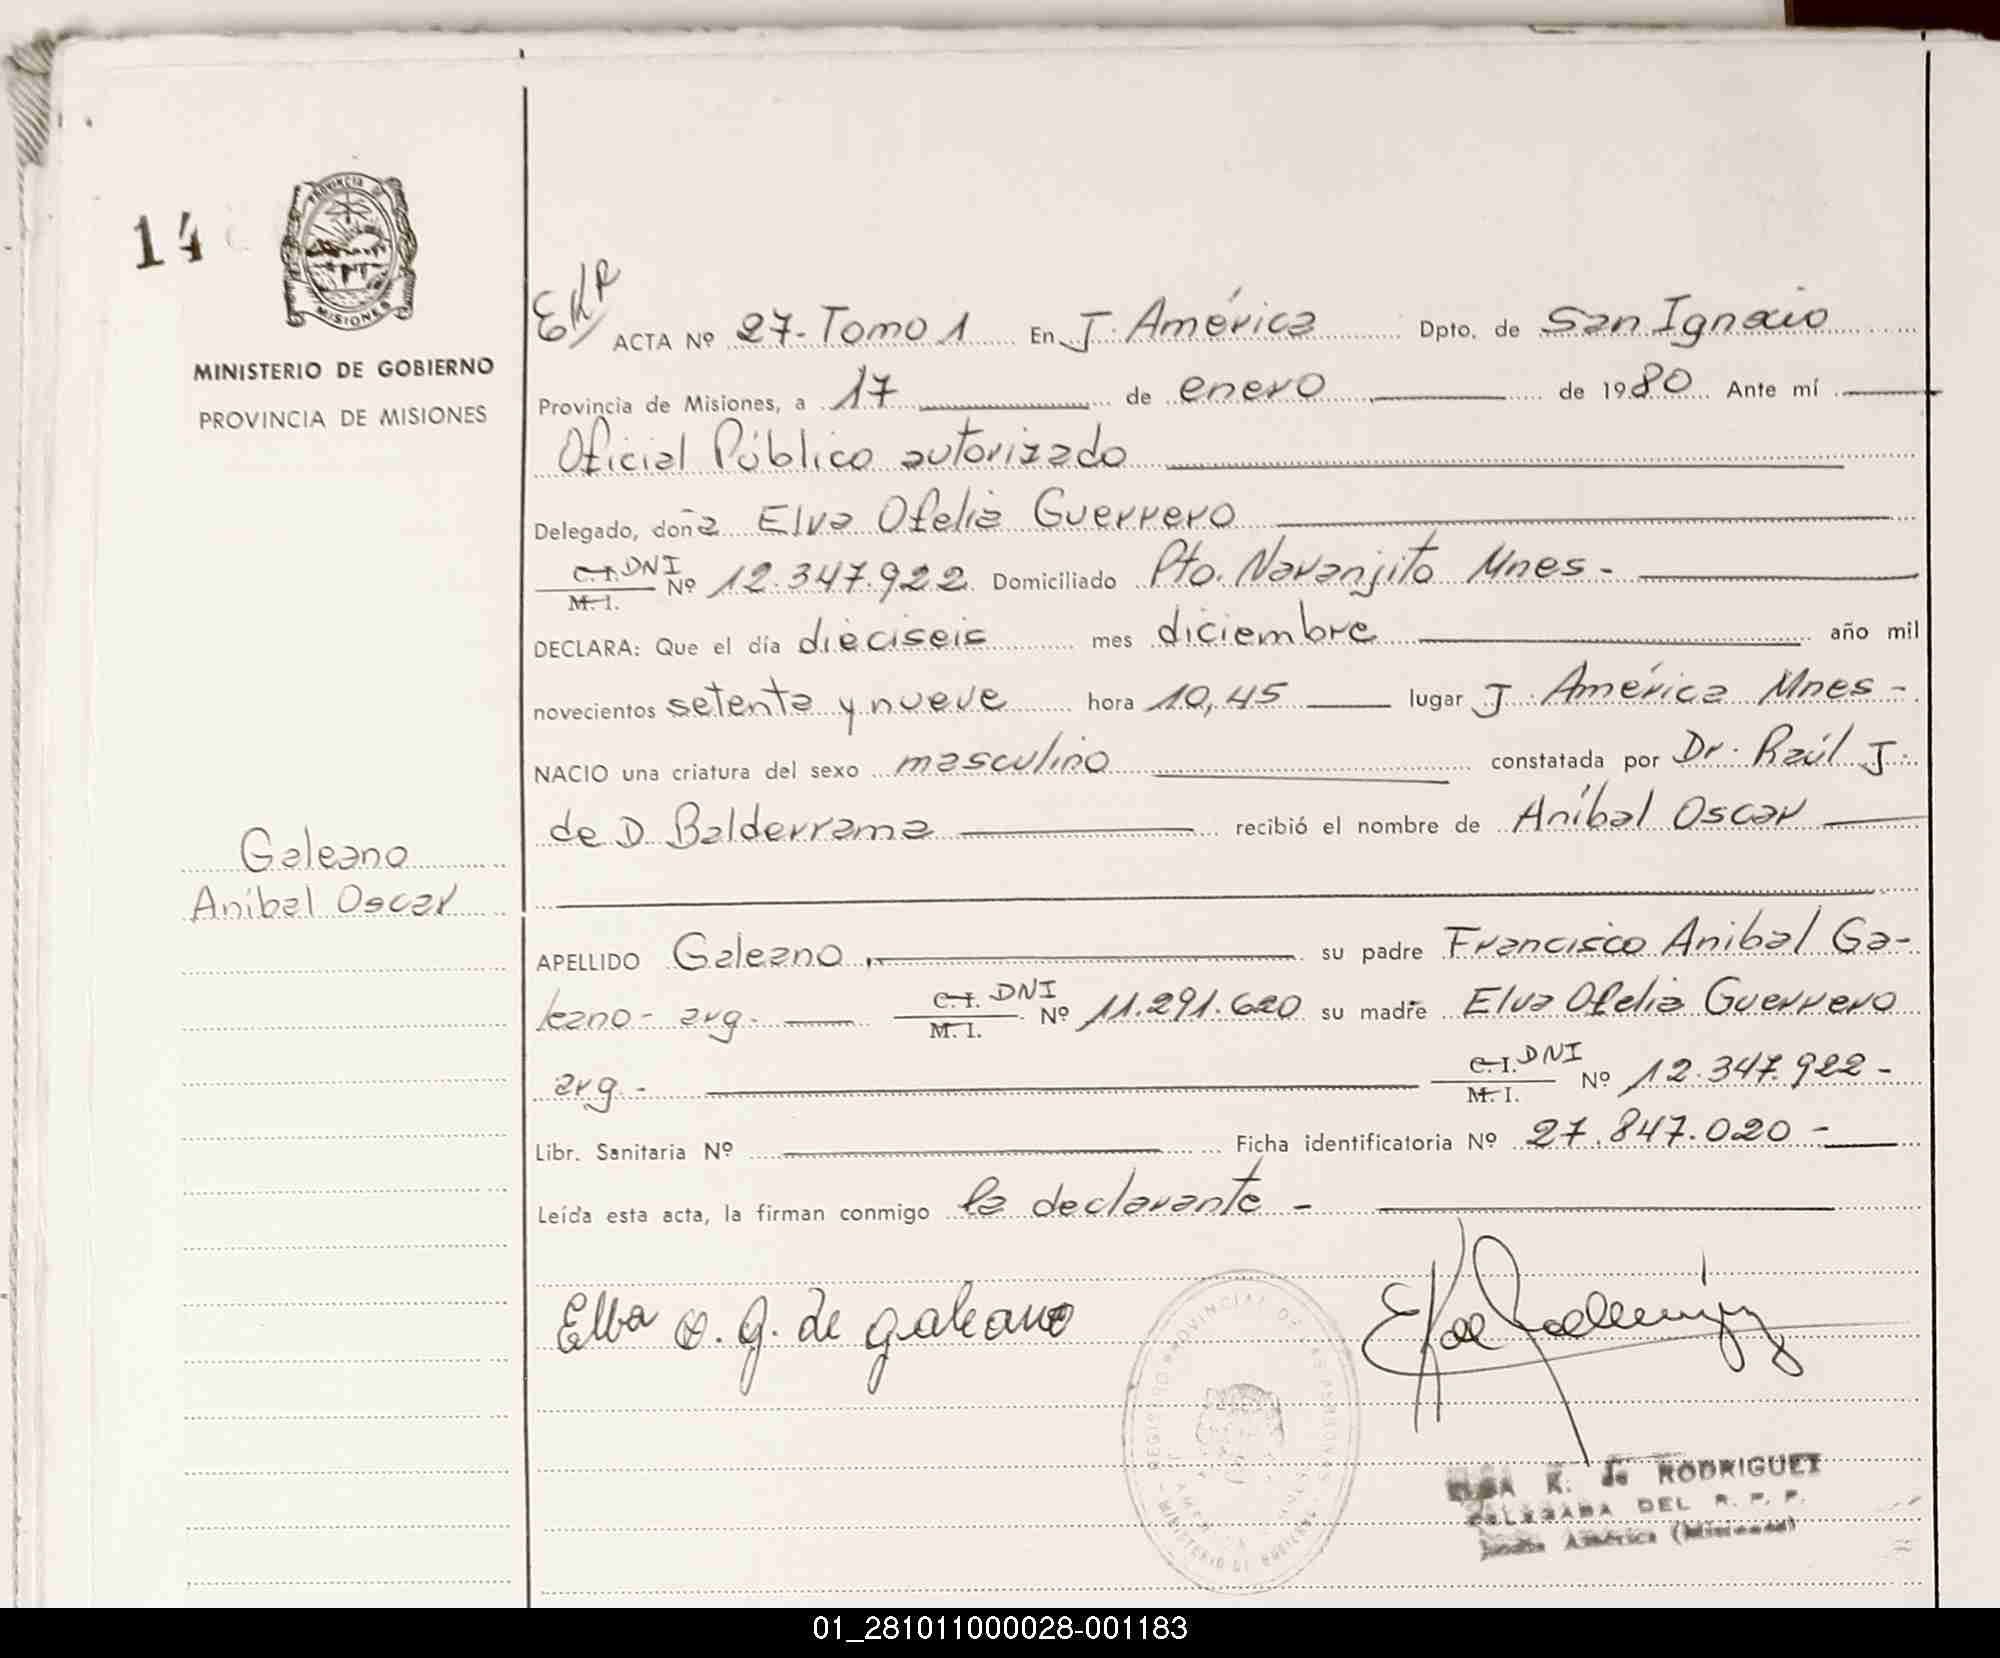 14
PROVINCIA DE
MISIONES
MINISTERIO DE GOBIERNO
PROVINCIA DE MISIONES
EKR
ACTA Nº 27- Tomo 1 En J. América Dpto. de San Ignacio
Provincia de Misiones, a 17 de enero de 1980 Ante mí
Oficial Público autorizado
Delegado, doña Elva Ofelia Guerrero
C.I. DNI
M. I. Nº 12.347.922 Domiciliado Pto. Naranjito Mnes-
DECLARA: Que el día dieciseis mes diciembre año mil
novecientos setenta y nueve hora 10,45 lugar J. América Mnes-
NACIO una criatura del sexo masculino constatada por Dr. Raúl J.
de D. Balderrama recibió el nombre de Aníbal Oscar
Galeano
Anibal Oscar
APELLIDO Galeano su padre Francisco Anibal Ga-
leano- arg. C.I. DNI
M. I. Nº 11.291.620 su madre Elva Ofelia Guerrero
arg.- C.I. DNI
M. I. Nº 12.347.922-
Libr. Sanitaria Nº Ficha identificatoria Nº 27.847.020-
Leída esta acta, la firman conmigo la declarante-
Elba O. G. de galeano
REGISTRO PROVINCIAL DE LAS PERSONAS
MINISTERIO DE GOBIERNO
ELSA K. de RODRIGUEZ
DELEGADA DEL R. P. P.
Jardín América (Misiones)
01_281011000028-001183